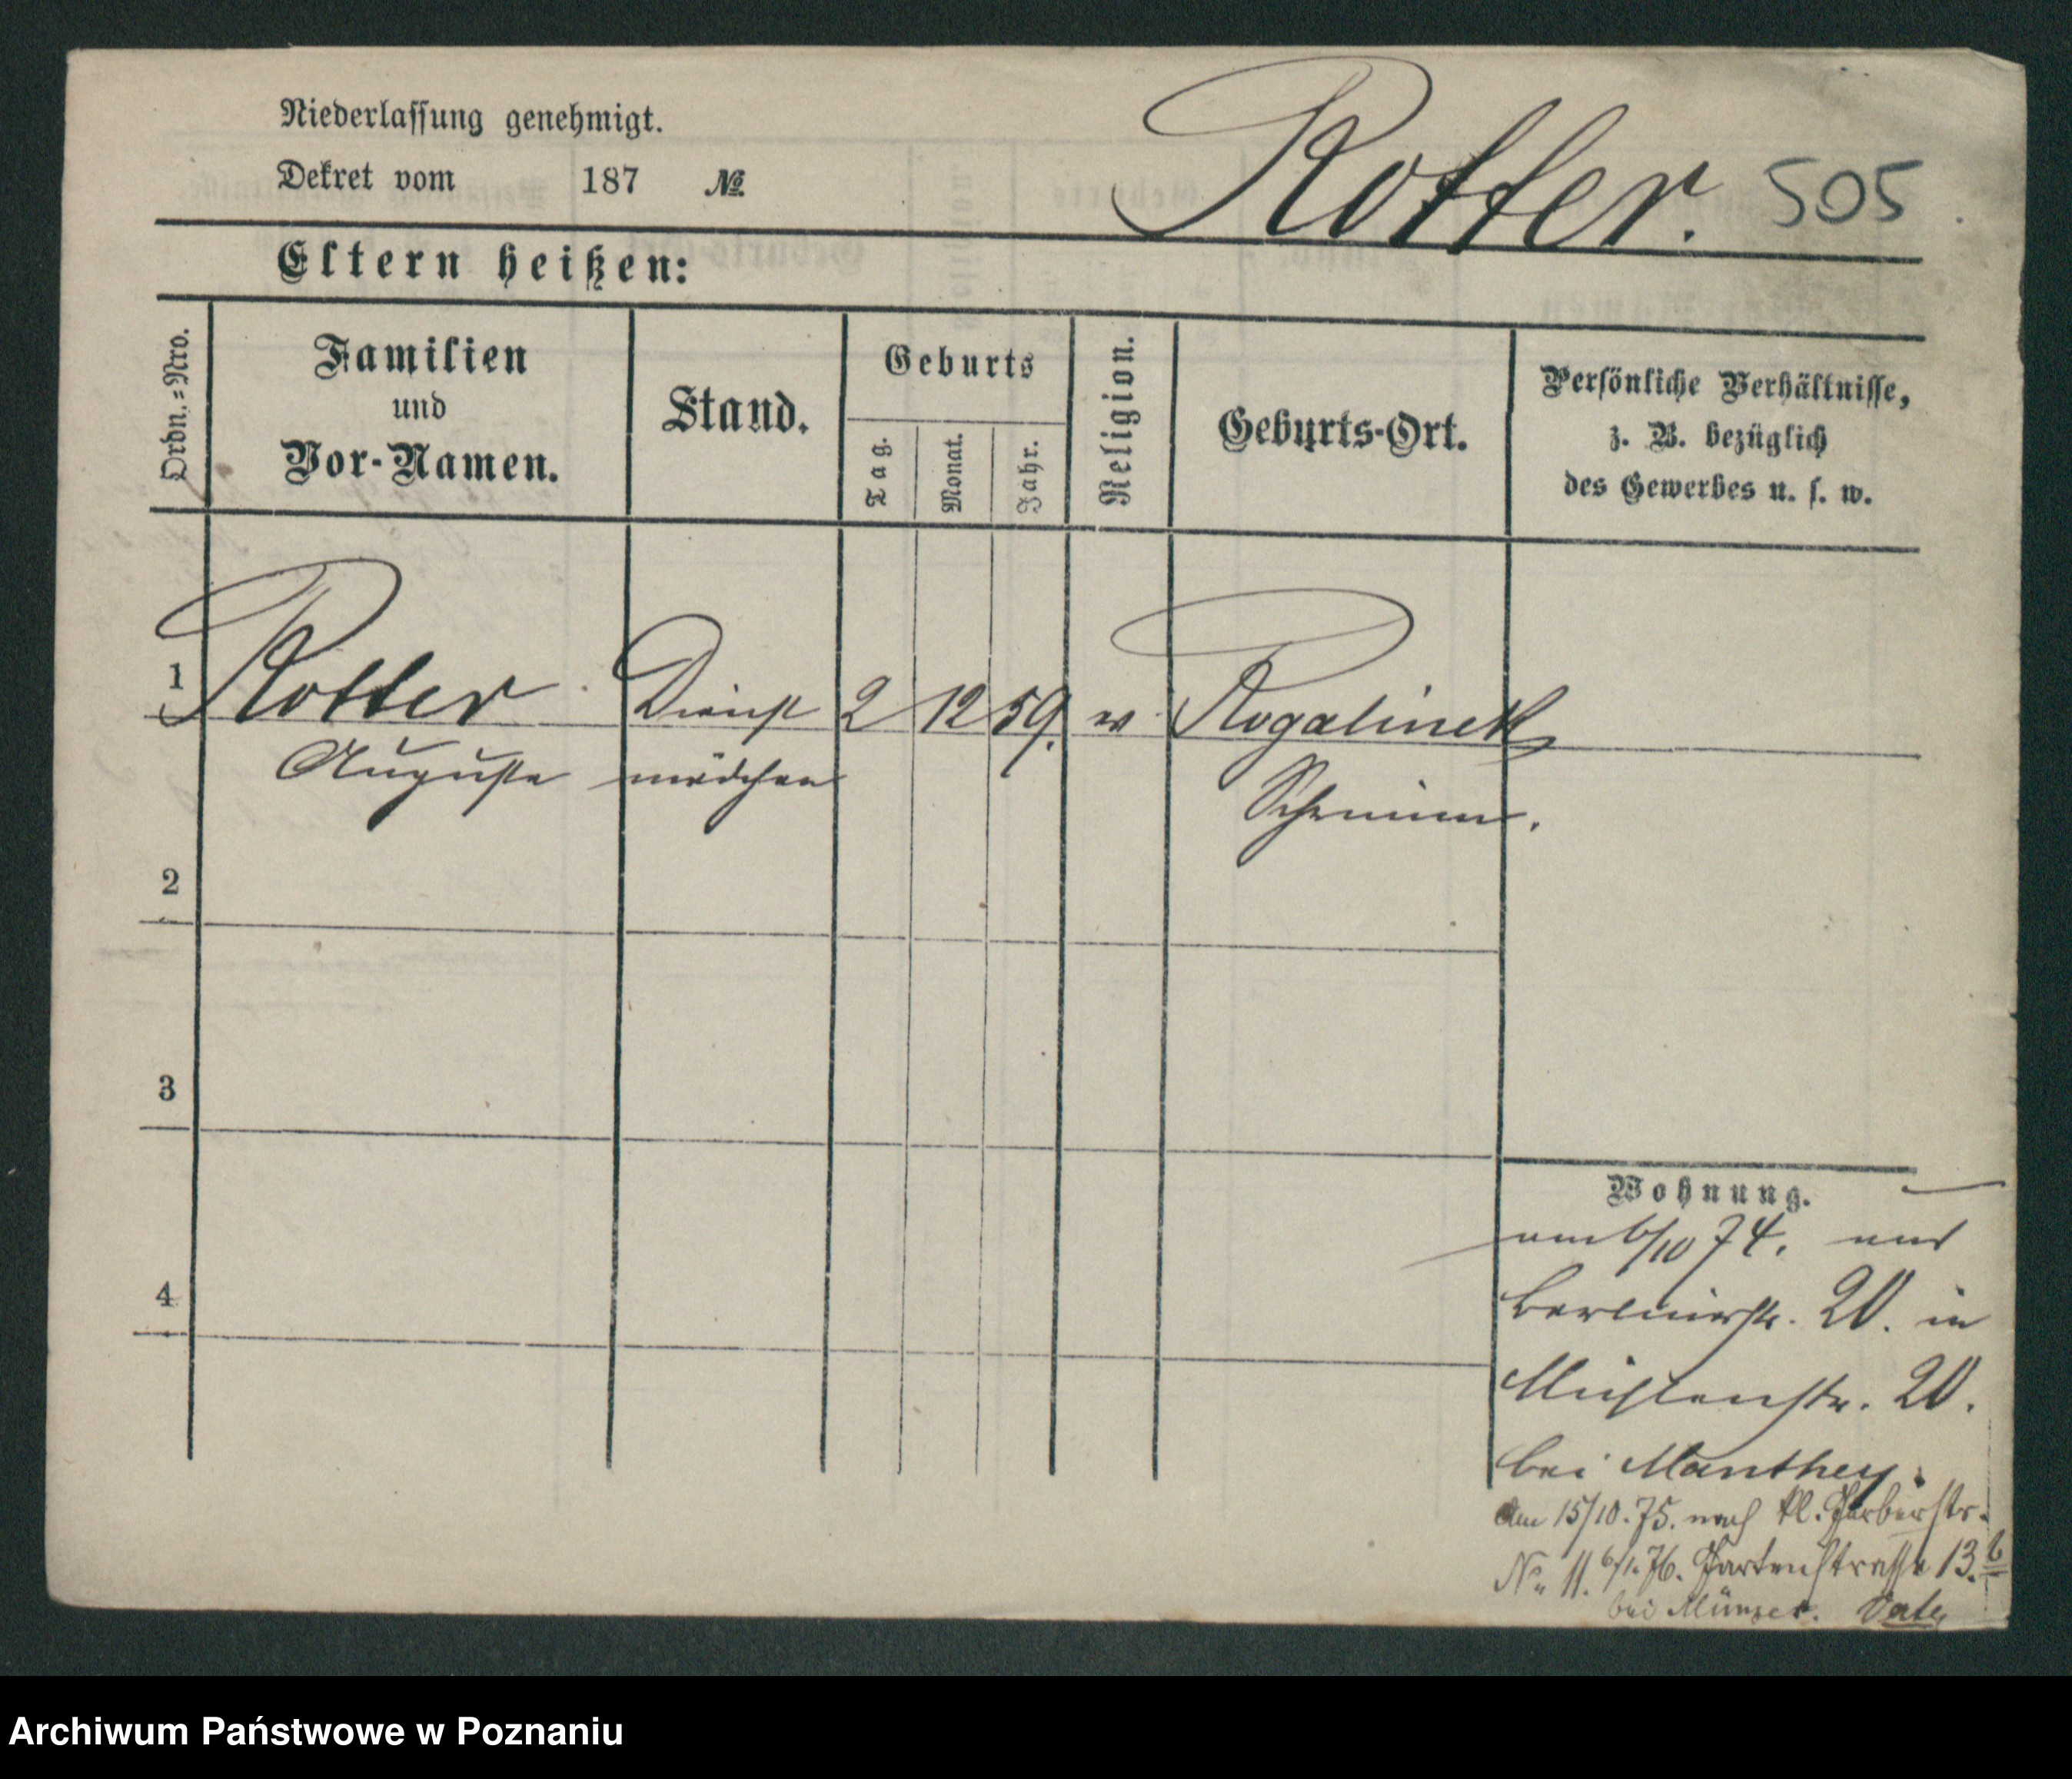 Niederlassung genehmigt.
Dekret vom 187 №
Rotter. 505
Eltern heißen:
Ordn.-Nro.
Familien
und
Vor-Namen.
Stand.
Geburts
Tag.
Monat.
Jahr.
Religion.
Geburts-Ort.
Persönliche Verhältnisse,
z. B. bezüglich
des Gewerbes u. s. w.
1 Rotter Dienst 2 12 59. Rogalinek
Auguste mädchen
Schrimm.
2
3
4
Wohnung.
am 6/10 74. aus
Berlinerstr. 20. in
Mühlenstr. 20.
bei Manthey.
Am 15/10.75. nach kl. Gerberstr.
No. 11. 6/1.76. Gartenstrasse 13.b
bei Münzer.
Archiwum Państwowe w Poznaniu